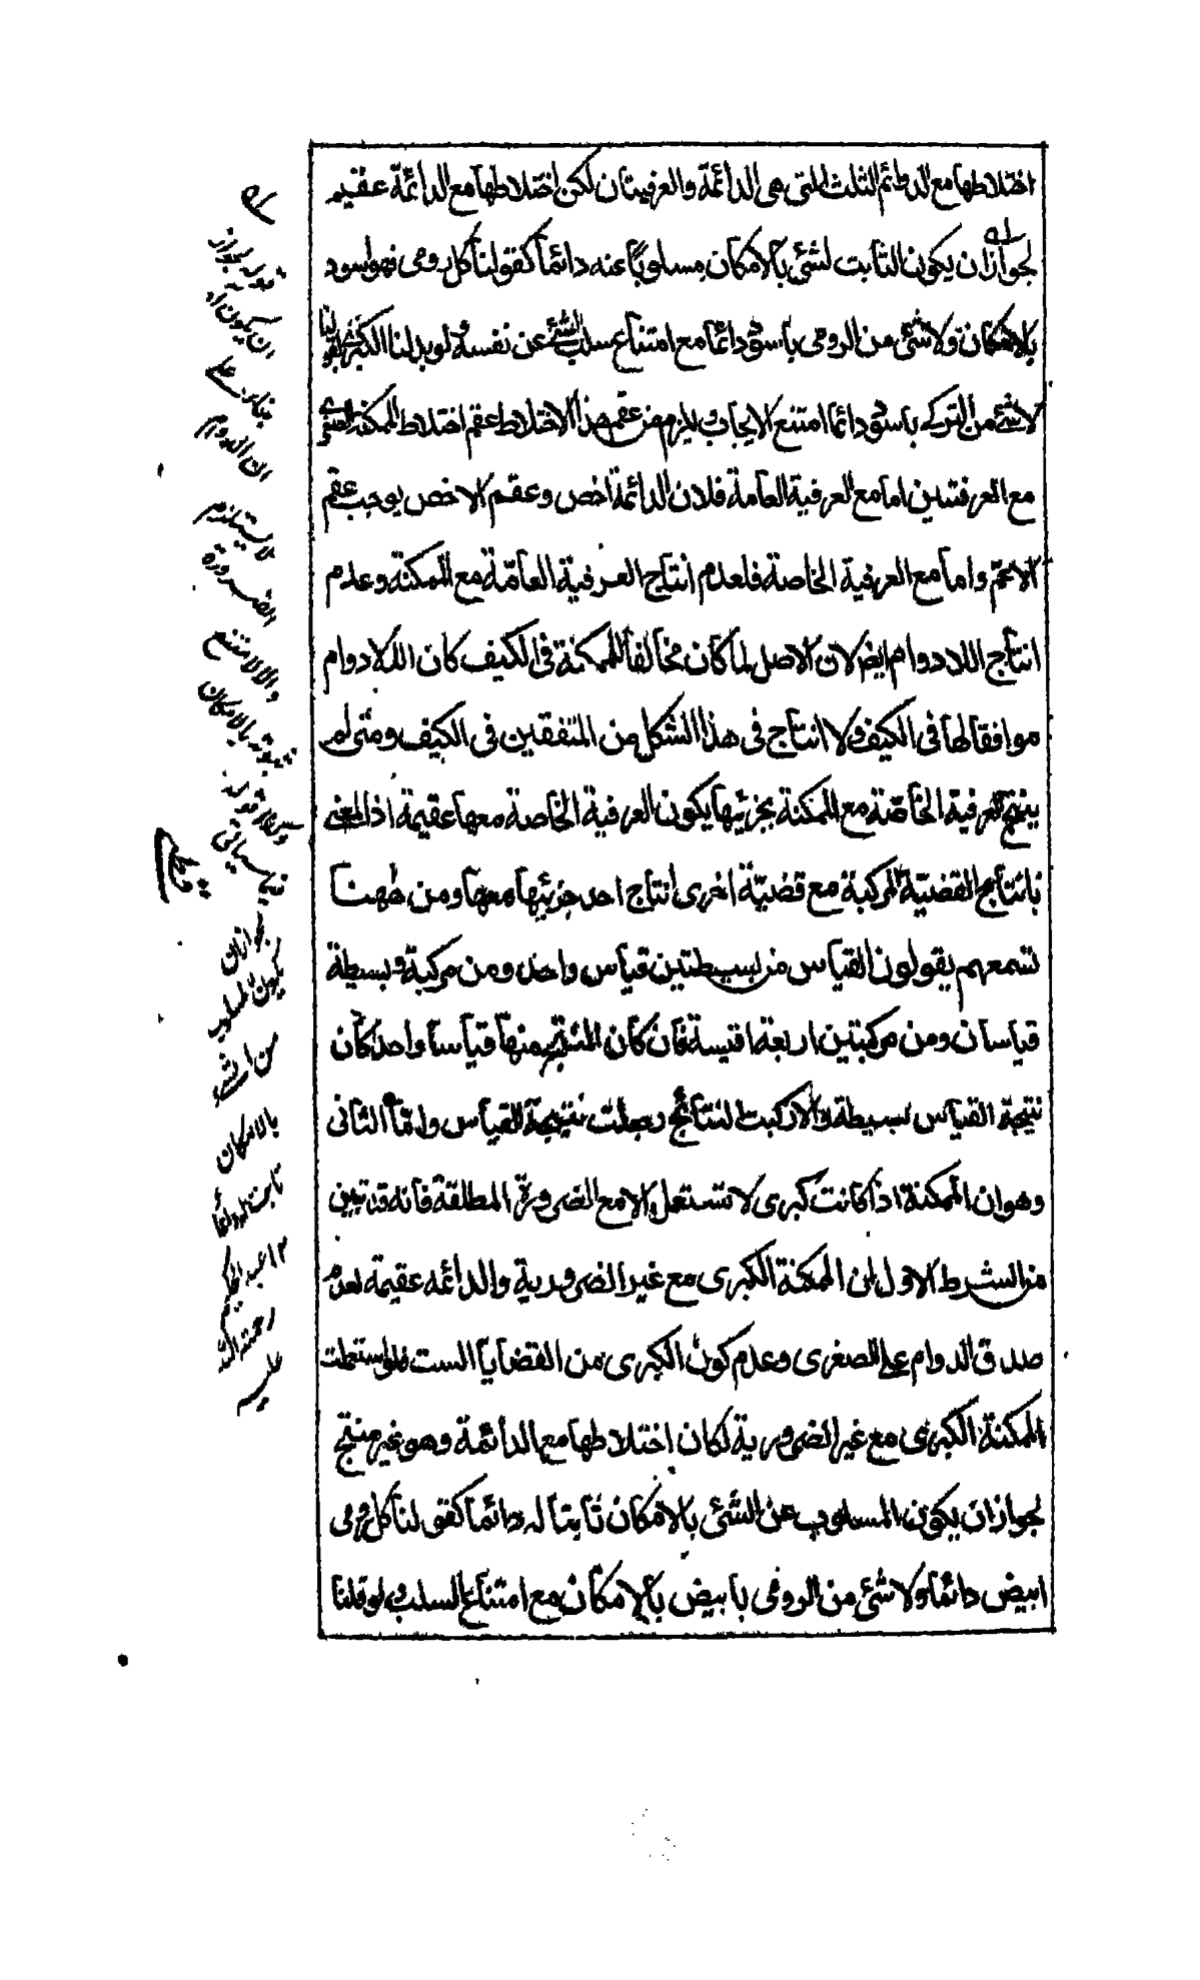 اختلاطها مع الدوائم الثلث التى هى الدائمة والعرفيتان لكن اختلاطها مع الدائمة عقيم
لجواز ان يكون الثابت لشئ بالامكان مسلوبا عنه دائما كقولنا كل رومى فهو اسود
بالامكان ولا شئ من الرومى باسود دائما مع امتناع سلب الشئ عن نفسه ولو بدلنا الكبرى بقولنا
لا شئ من التركى باسود دائما امتنع الايجاب ويلزم من عقم هذا الاختلاط عقم اختلاط الممكنة الصغرى
مع العرفيتين اما مع العرفية العامة فلان الدائمة اخص وعقم الاخص يوجب عقم
الاعم واما مع العرفية الخاصة فلعدم انتاج العرفية العامّة مع الممكنة وعدم
انتاج اللادوام ايض لان الاصل لما كان مخالفا للممكنة فى الكيف كان اللادوام
موافقا لها فى الكيف ولا انتاج فى هذا الشكل من المتفقين فى الكيف ومتى لم
ينتج العرفية الخاصّة مع الممكنة بجزئيها يكون العرفية الخاصة معها عقيمة اذ المعنى
بانتاج القضية المركبة مع قضيّة اخرى انتاج احد جزئيها معها ومن ههنا
تسمعهم يقولون القياس من بسيطتين قياس واحد ومن مركبة وبسيطة
قياسان ومن مركبتين اربعة اقيسة فان كان المنتج منها قياسا واحدا كان
نتيجة القياس بسيطة والا ركبت النتائج وجعلت نتيجة القياس واما الثانى
وهو ان الممكنة اذا كانت كبرى لا تستعمل الا مع الضرورة المطلقة فانه قد تبين
من الشرط الاول ان الممكنة الكبرى مع غير الضرورية والدائمه عقيمة لعدم
صدق الدوام على الصغرى وعدم كون الكبرى من القضايا الست فلو استعملت
الممكنة الكبرى مع غير الضرورية لكان اختلاطها مع الدائمة وهو غير منتج
لجواز ان يكون المسلوب عن الشئ بالامكان ثابتا له دائما كقولنا كل رومى
ابيض دائما ولا شئ من الرومى بابيض بالامكان مع امتناع السلب ولو قلنا
قوله لجواز
ان يكون اه
بناء على
ان الدوام
لا يستلزم
الضرورة
والا لامتنع
ثبوته بالامكان
سيأتى
لجواز ان
يكون المسلوب
من الشئ
بالامكان
ثابتا له دائما
١٢ عبد الحكيم
رحمة الله
عليه